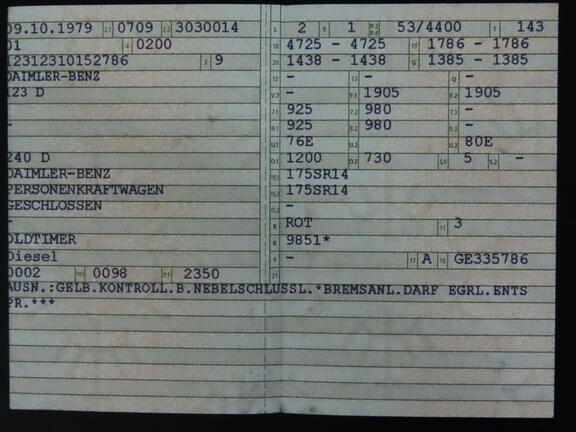 09.10.1979 2.1 0709 2.2 3030014 L 2 9 1 P.2 P.4 53/4400 T 143
01 4 0200 18 4725 - 4725 19 1786 - 1786
12312310152786 3 9 20 1438 - 1438 G 1385 - 1385
DAIMLER-BENZ 12 - 13 - Q -
123 D V.7 - F.1 1905 F.2 1905
7.1 925 7.2 980 7.3 -
- 8.1 925 8.2 980 8.3 -
U.1 76E U.2 U.3 80E
240 D O.1 1200 O.2 730 S.1 5 S.2 -
DAIMLER-BENZ 15.1 175SR14
PERSONENKRAFTWAGEN 15.2 175SR14
GESCHLOSSEN 15.3 -
- R ROT 11 3
OLDTIMER K 9851*
Diesel 6 - 17 A 16 GE335786
0002 14.1 0098 P.1 2350 21
AUSN.:GELB.KONTROLL.B.NEBELSCHLUSSL.*BREMSANL.DARF EGRL.ENTS
PR.***